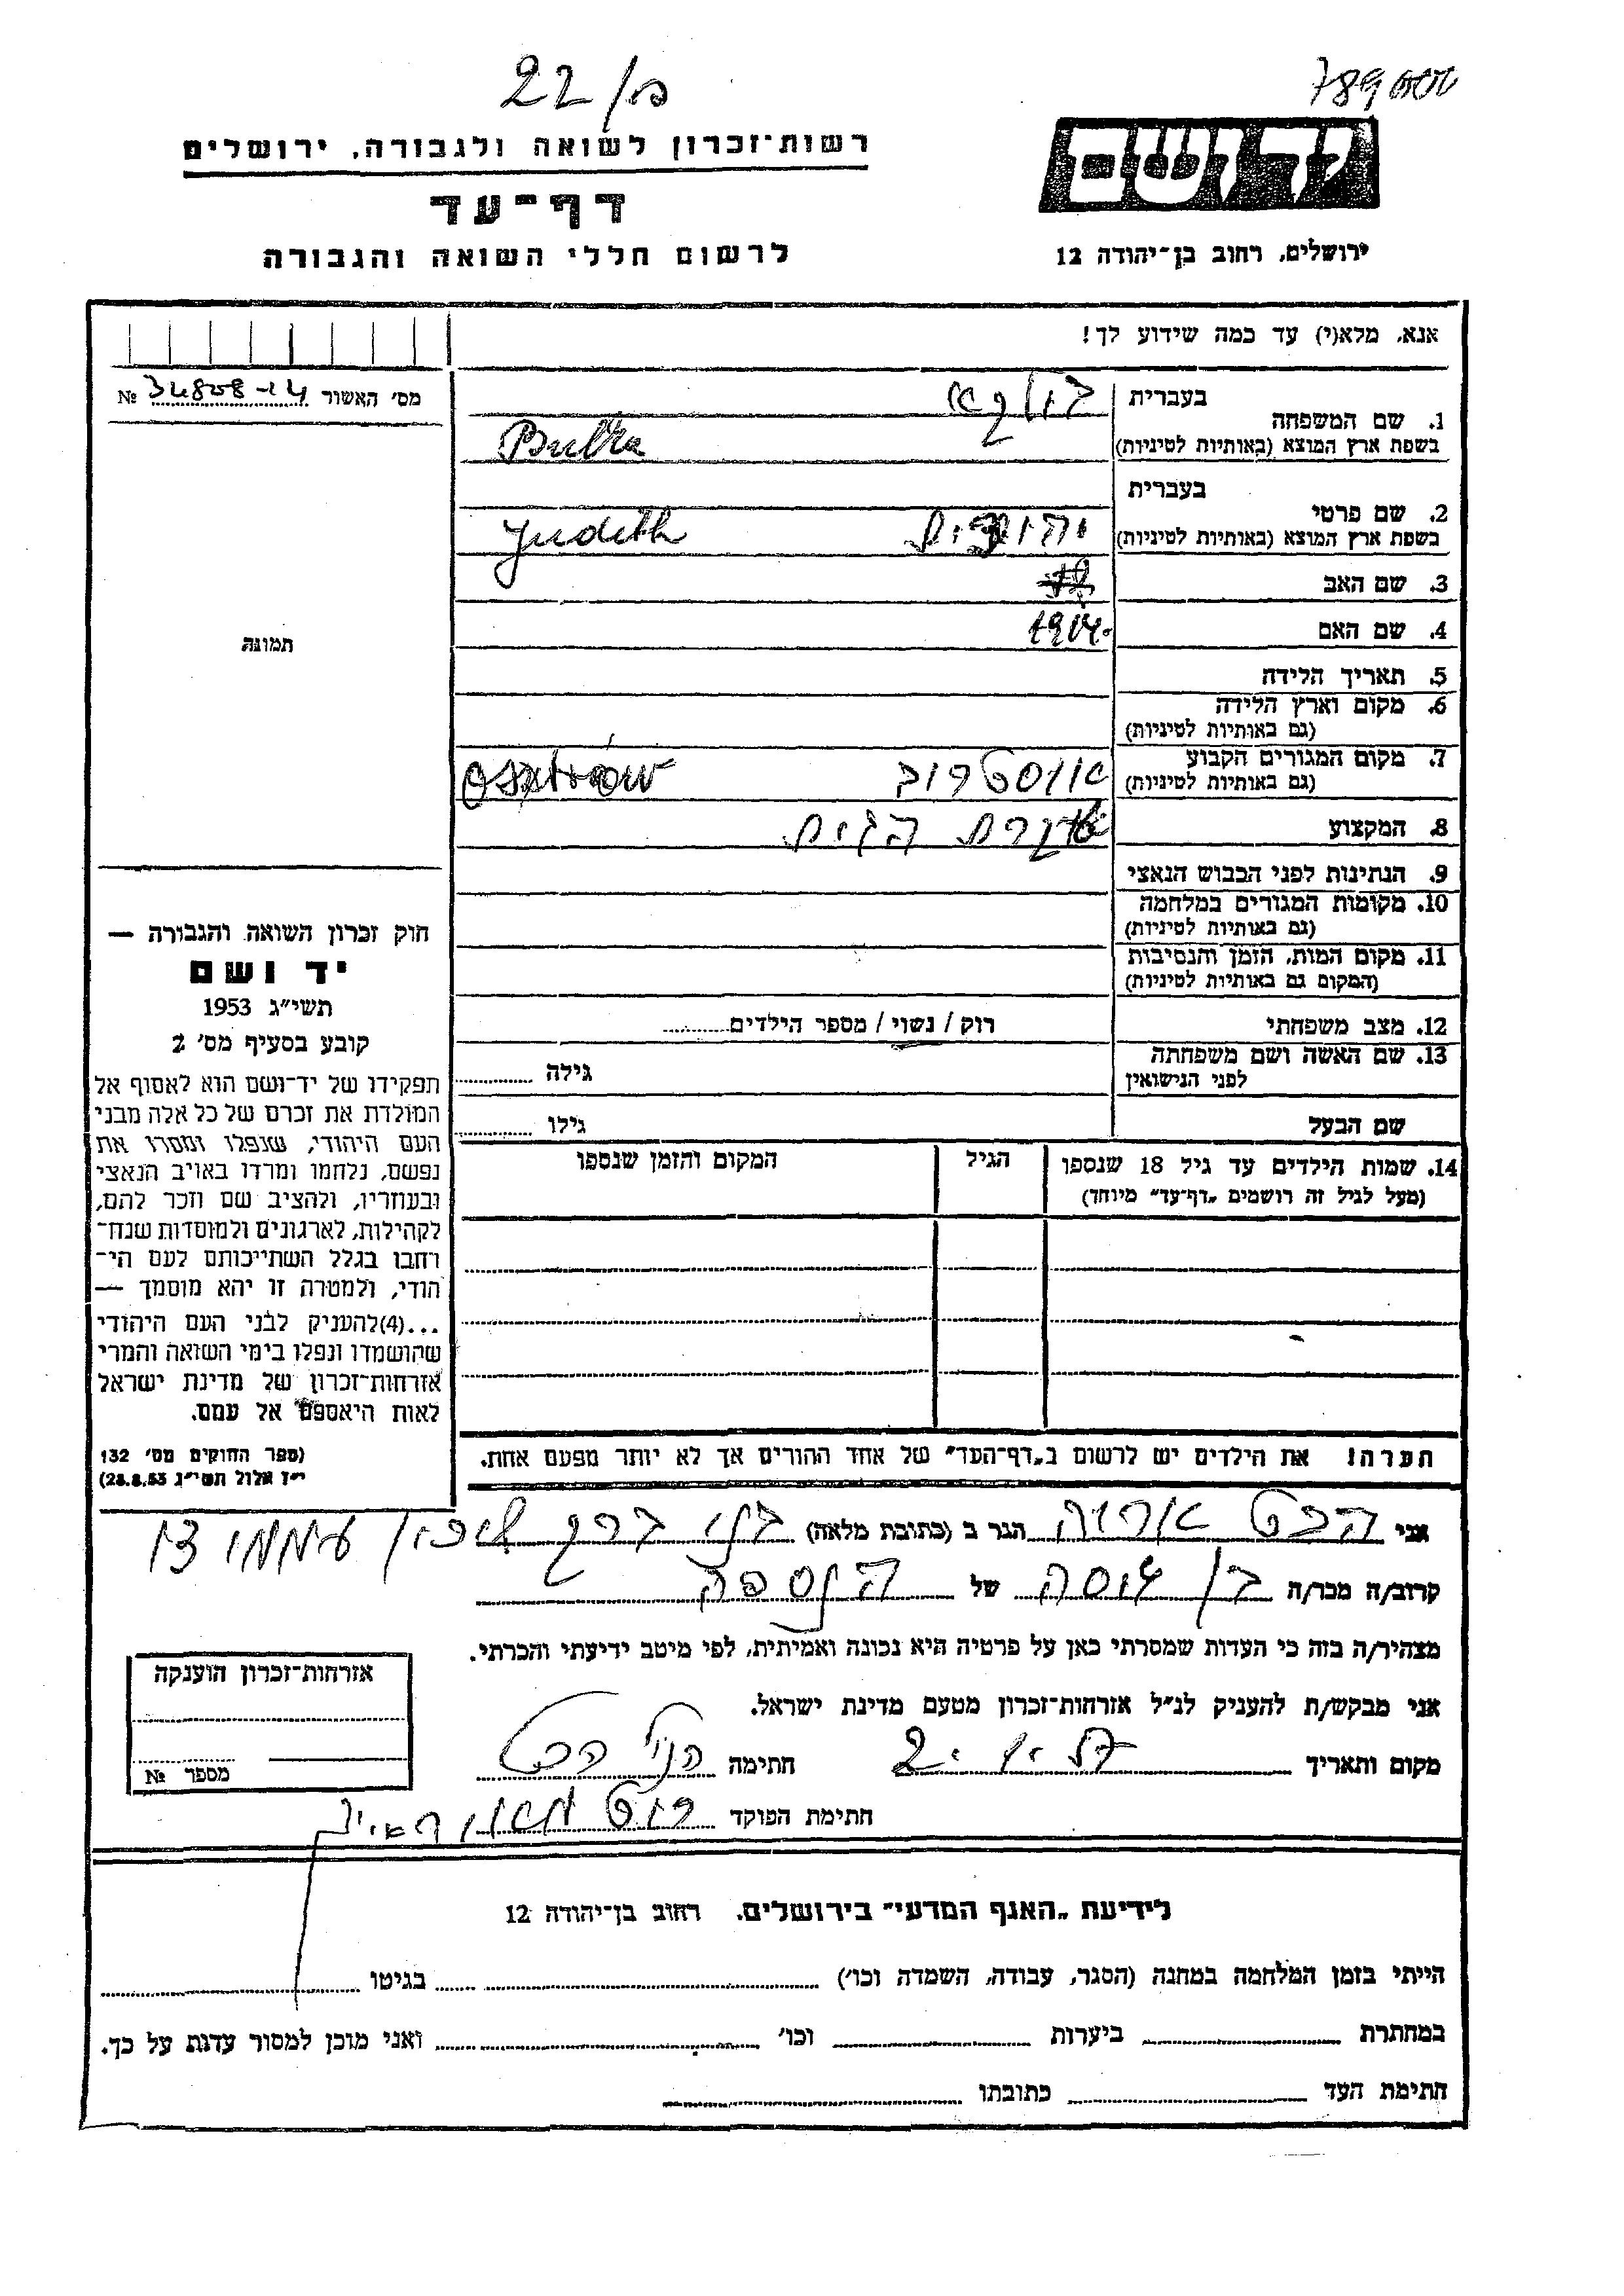 22/ס
789000
רשות־זכרון לשואה ולגבורה, ירושלים
יד ושם
דף־עד
לרשום חללי השואה והגבורה
ירושלים, רחוב בן־יהודה 12
אנא, מלא(י) עד כמה שידוע לך!
מס' האשור 34808-14 №
1. שם המשפחה
בעברית בולקא
בשפת ארץ המוצא (באותיות לטיניות) Bulka
2. שם פרטי
בעברית
יהודית
בשפת ארץ המוצא (באותיות לטיניות) Judeth
3. שם האב
4. שם האם
5. תאריך הלידה
6. מקום וארץ הלידה
(גם באותיות לטיניות)
7. מקום המגורים הקבוע אוסטרוב
(גם באותיות לטיניות)
8. המקצוע עקרת הבית
9. הנתינות לפני הכבוש הנאצי
10. מקומות המגורים במלחמה
(גם באותיות לטיניות)
11. מקום המות, הזמן והנסיבות
(המקום גם באותיות לטיניות)
12. מצב משפחתי רוק / נשוי / מספר הילדים
13. שם האשה ושם משפחתה
לפני הנישואין גילה
שם הבעל גילו
14. שמות הילדים עד גיל 18 שנספו הגיל המקום והזמן שנספו
(מעל לגיל זה רושמים „דף־עד" מיוחד)
תמונה
חוק זכרון השואה והגבורה —
יד ושם
תשי"ג 1953
קובע בסעיף מס' 2
תפקידו של יד־ושם הוא לאסוף אל
המולדת את זכרם של כל אלה מבני
העם היהודי, שנפלו ומסרו את
נפשם, נלחמו ומרדו באויב הנאצי
ובעוזריו, ולהציב שם וזכר להם,
לקהילות, לארגונים ולמוסדות שנח־
רחבו בגלל השתייכותם לעם הי־
הודי, ולמטרה זו יהא מוסמך —
...(4)להעניק לבני העם היהודי
שהושמדו ונפלו בימי השואה והמרי
אזרחות־זכרון של מדינת ישראל
לאות היאספם אל עמם.
(ספר החוקים מס' 132
י"ז אלול תשי"ג 28.8.53)
הערה! את הילדים יש לרשום ב„דף־העד" של אחד ההורים אך לא יותר מפעם אחת.
אני הכט אריה הגר ב (כתובת מלאה) בני ברק שכון עממי
קרוב/ה מכר/ה בן דוסה של הנספה
מצהיר/ה בזה כי העדות שמסרתי כאן על פרטיה היא נכונה ואמיתית, לפי מיטב ידיעתי והכרתי.
אני מבקש/ת להעניק לנ"ל אזרחות־זכרון מטעם מדינת ישראל.
מקום ותאריך חתימה הנ"ל הכט
חתימת הפוקד
אזרחות־זכרון הוענקה
מספר №
לידיעת „האגף המדעי" בירושלים. רחוב בן־יהודה 12
הייתי בזמן המלחמה במחנה (הסגר, עבודה, השמדה וכו') בגיטו
במחתרת ביערות וכו' ואני מוכן למסור עדות על כך.
חתימת העד כתובתו